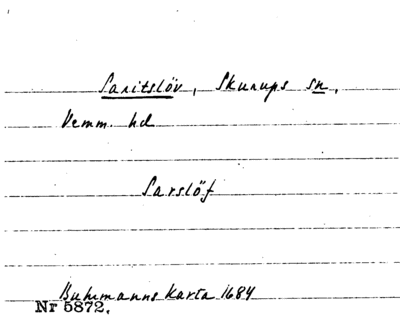 Saritslöv, Skurups sn,
Vemm. hd
Sarslöf
Buhrmanns Karta 1684
Nr 5872.